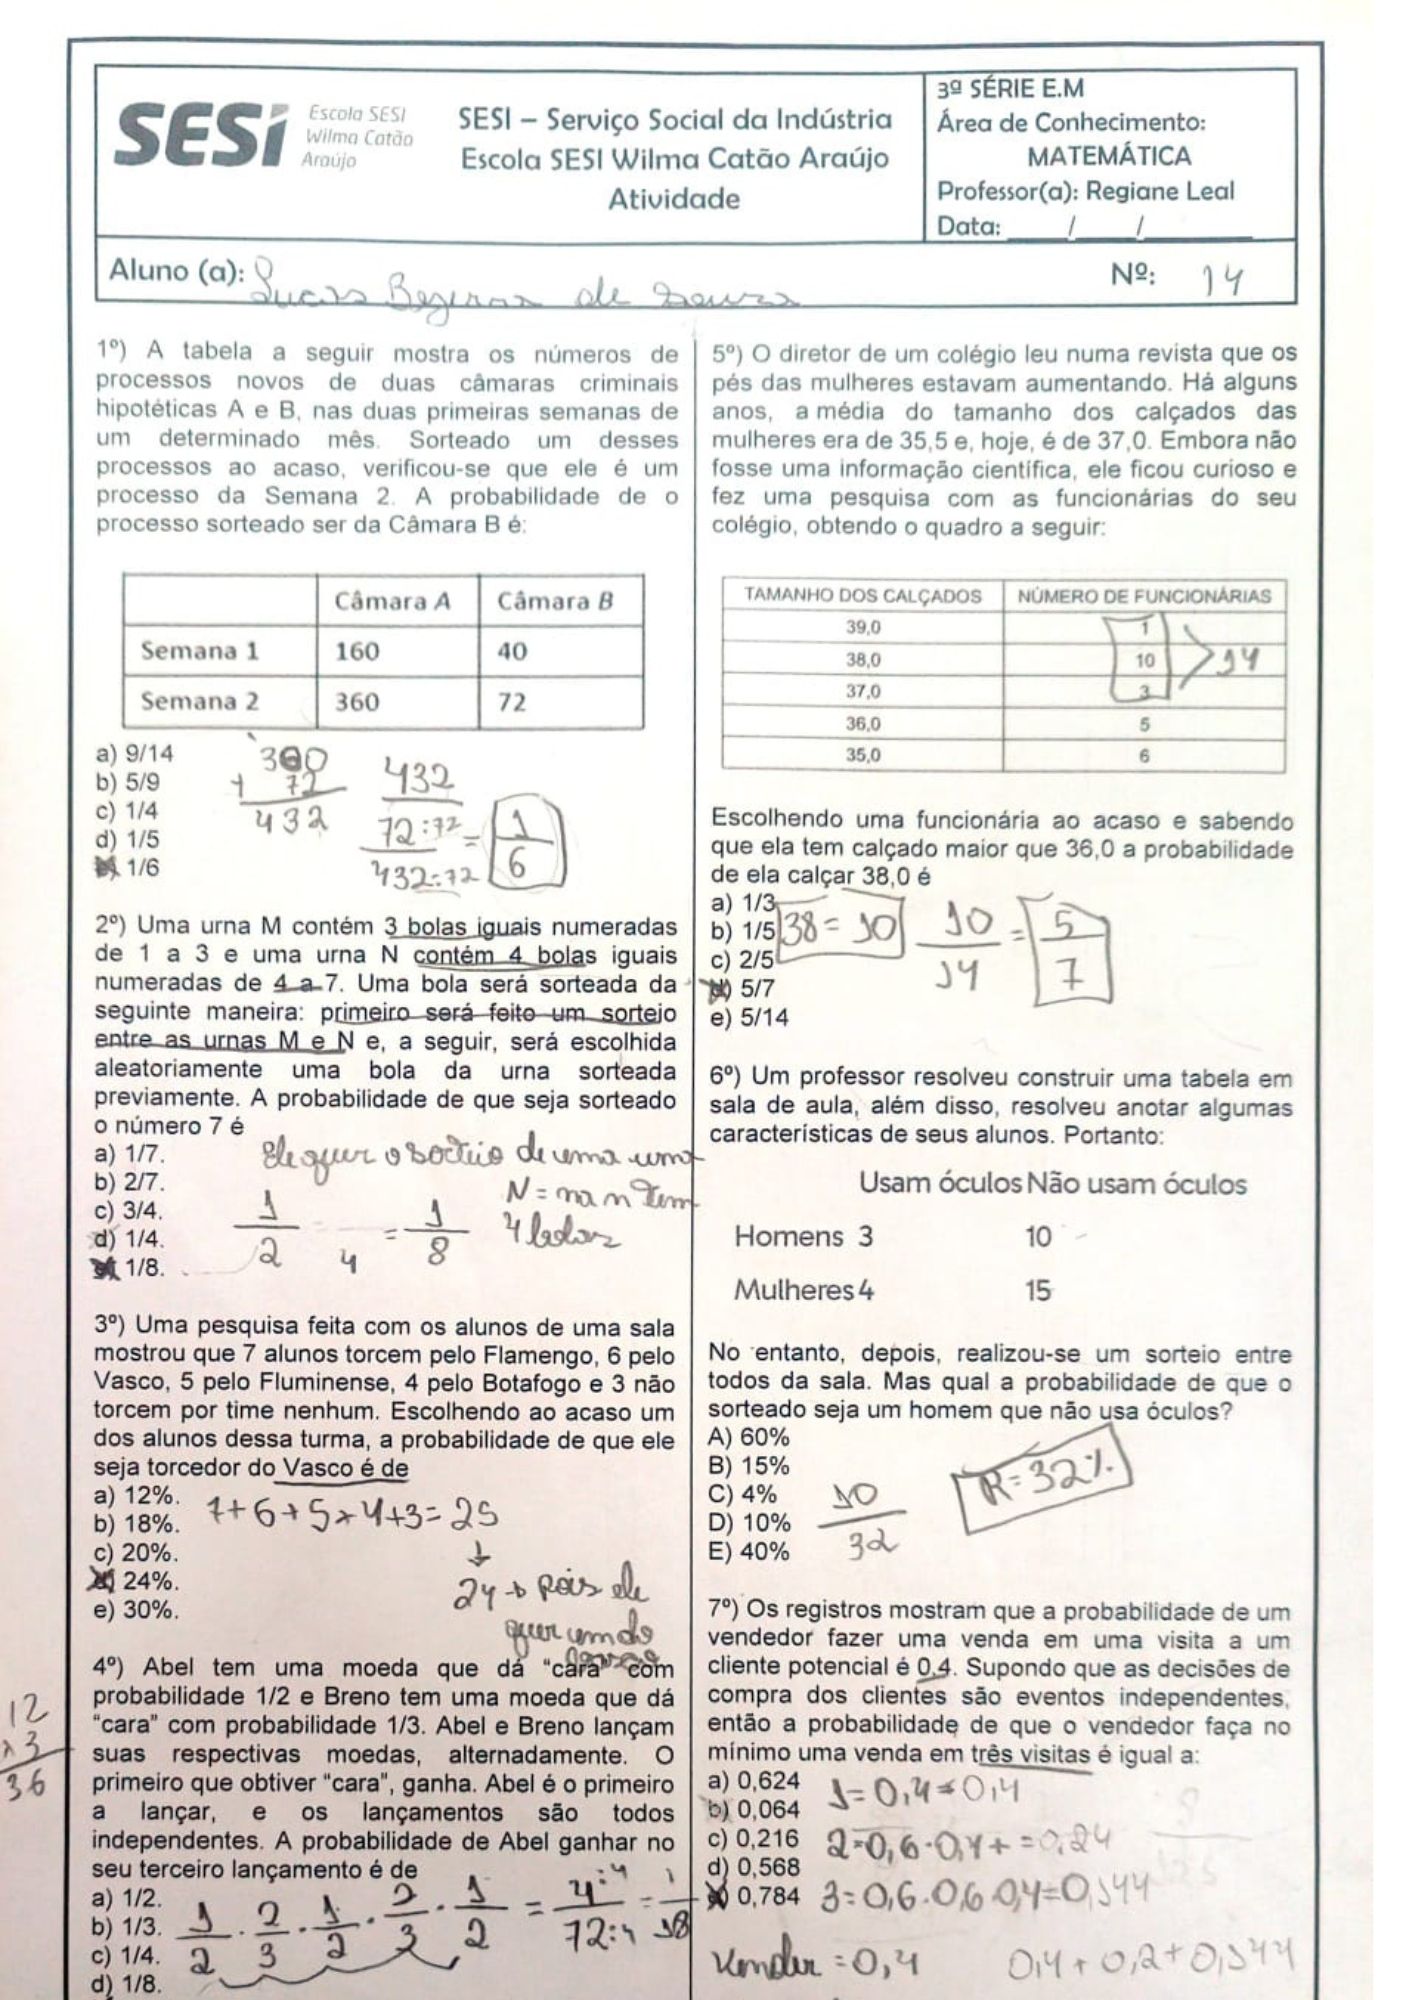 SESI
Escola SESI
Wilma Catão
Araújo
SESI – Serviço Social da Indústria
Escola SESI Wilma Catão Araújo
Atividade
3ª SÉRIE E.M
Área de Conhecimento:
MATEMÁTICA
Professor(a): Regiane Leal
Data: ____/____/________
Aluno (a): Lucas Bezerra de Souza
Nº: 14
1º) A tabela a seguir mostra os números de
processos novos de duas câmaras criminais
hipotéticas A e B, nas duas primeiras semanas de
um determinado mês. Sorteado um desses
processos ao acaso, verificou-se que ele é um
processo da Semana 2. A probabilidade de o
processo sorteado ser da Câmara B é:
Câmara A Câmara B
Semana 1 160 40
Semana 2 360 72
a) 9/14
b) 5/9
c) 1/4
d) 1/5
1/6
360
+ 72
432
432
72:72
432:72
= 1/6
2º) Uma urna M contém 3 bolas iguais numeradas
de 1 a 3 e uma urna N contém 4 bolas iguais
numeradas de 4 a 7. Uma bola será sorteada da
seguinte maneira: primeiro será feito um sorteio
entre as urnas M e N e, a seguir, será escolhida
aleatoriamente uma bola da urna sorteada
previamente. A probabilidade de que seja sorteado
o número 7 é
a) 1/7.
b) 2/7.
c) 3/4.
d) 1/4.
1/8.
Ele quer o sorteio de uma urna
N = na n tem
4 bolas
1/2 4 = 1/8
3º) Uma pesquisa feita com os alunos de uma sala
mostrou que 7 alunos torcem pelo Flamengo, 6 pelo
Vasco, 5 pelo Fluminense, 4 pelo Botafogo e 3 não
torcem por time nenhum. Escolhendo ao acaso um
dos alunos dessa turma, a probabilidade de que ele
seja torcedor do Vasco é de
a) 12%.
b) 18%.
c) 20%.
24%.
e) 30%.
7+6+5+4+3=25
↓
24 → pois ele
quer um do
4º) Abel tem uma moeda que dá “cara” com
probabilidade 1/2 e Breno tem uma moeda que dá
“cara” com probabilidade 1/3. Abel e Breno lançam
suas respectivas moedas, alternadamente. O
primeiro que obtiver “cara”, ganha. Abel é o primeiro
a lançar, e os lançamentos são todos
independentes. A probabilidade de Abel ganhar no
seu terceiro lançamento é de
a) 1/2.
b) 1/3.
c) 1/4.
d) 1/8.
12
x 3
36
1/2 · 2/3 · 1/2 · 2/3 · 1/2 = 4:4/72:4 = 1/18
5º) O diretor de um colégio leu numa revista que os
pés das mulheres estavam aumentando. Há alguns
anos, a média do tamanho dos calçados das
mulheres era de 35,5 e, hoje, é de 37,0. Embora não
fosse uma informação científica, ele ficou curioso e
fez uma pesquisa com as funcionárias do seu
colégio, obtendo o quadro a seguir:
TAMANHO DOS CALÇADOS NÚMERO DE FUNCIONÁRIAS
39,0 1
38,0 10
37,0 3
36,0 5
35,0 6
14
Escolhendo uma funcionária ao acaso e sabendo
que ela tem calçado maior que 36,0 a probabilidade
de ela calçar 38,0 é
a) 1/3
b) 1/5
c) 2/5
d) 5/7
e) 5/14
38 = 10
10/14 = 5/7
6º) Um professor resolveu construir uma tabela em
sala de aula, além disso, resolveu anotar algumas
características de seus alunos. Portanto:
Usam óculos Não usam óculos
Homens 3 10
Mulheres 4 15
No entanto, depois, realizou-se um sorteio entre
todos da sala. Mas qual a probabilidade de que o
sorteado seja um homem que não usa óculos?
A) 60%
B) 15%
C) 4%
D) 10%
E) 40%
10/32
R=32%
7º) Os registros mostram que a probabilidade de um
vendedor fazer uma venda em uma visita a um
cliente potencial é 0,4. Supondo que as decisões de
compra dos clientes são eventos independentes,
então a probabilidade de que o vendedor faça no
mínimo uma venda em três visitas é igual a:
a) 0,624
b) 0,064
c) 0,216
d) 0,568
0,784
1=0,4=0,4
2=0,6·0,4+=0,24
3=0,6·0,6·0,4=0,144
Vender = 0,4
0,4+0,2+0,144